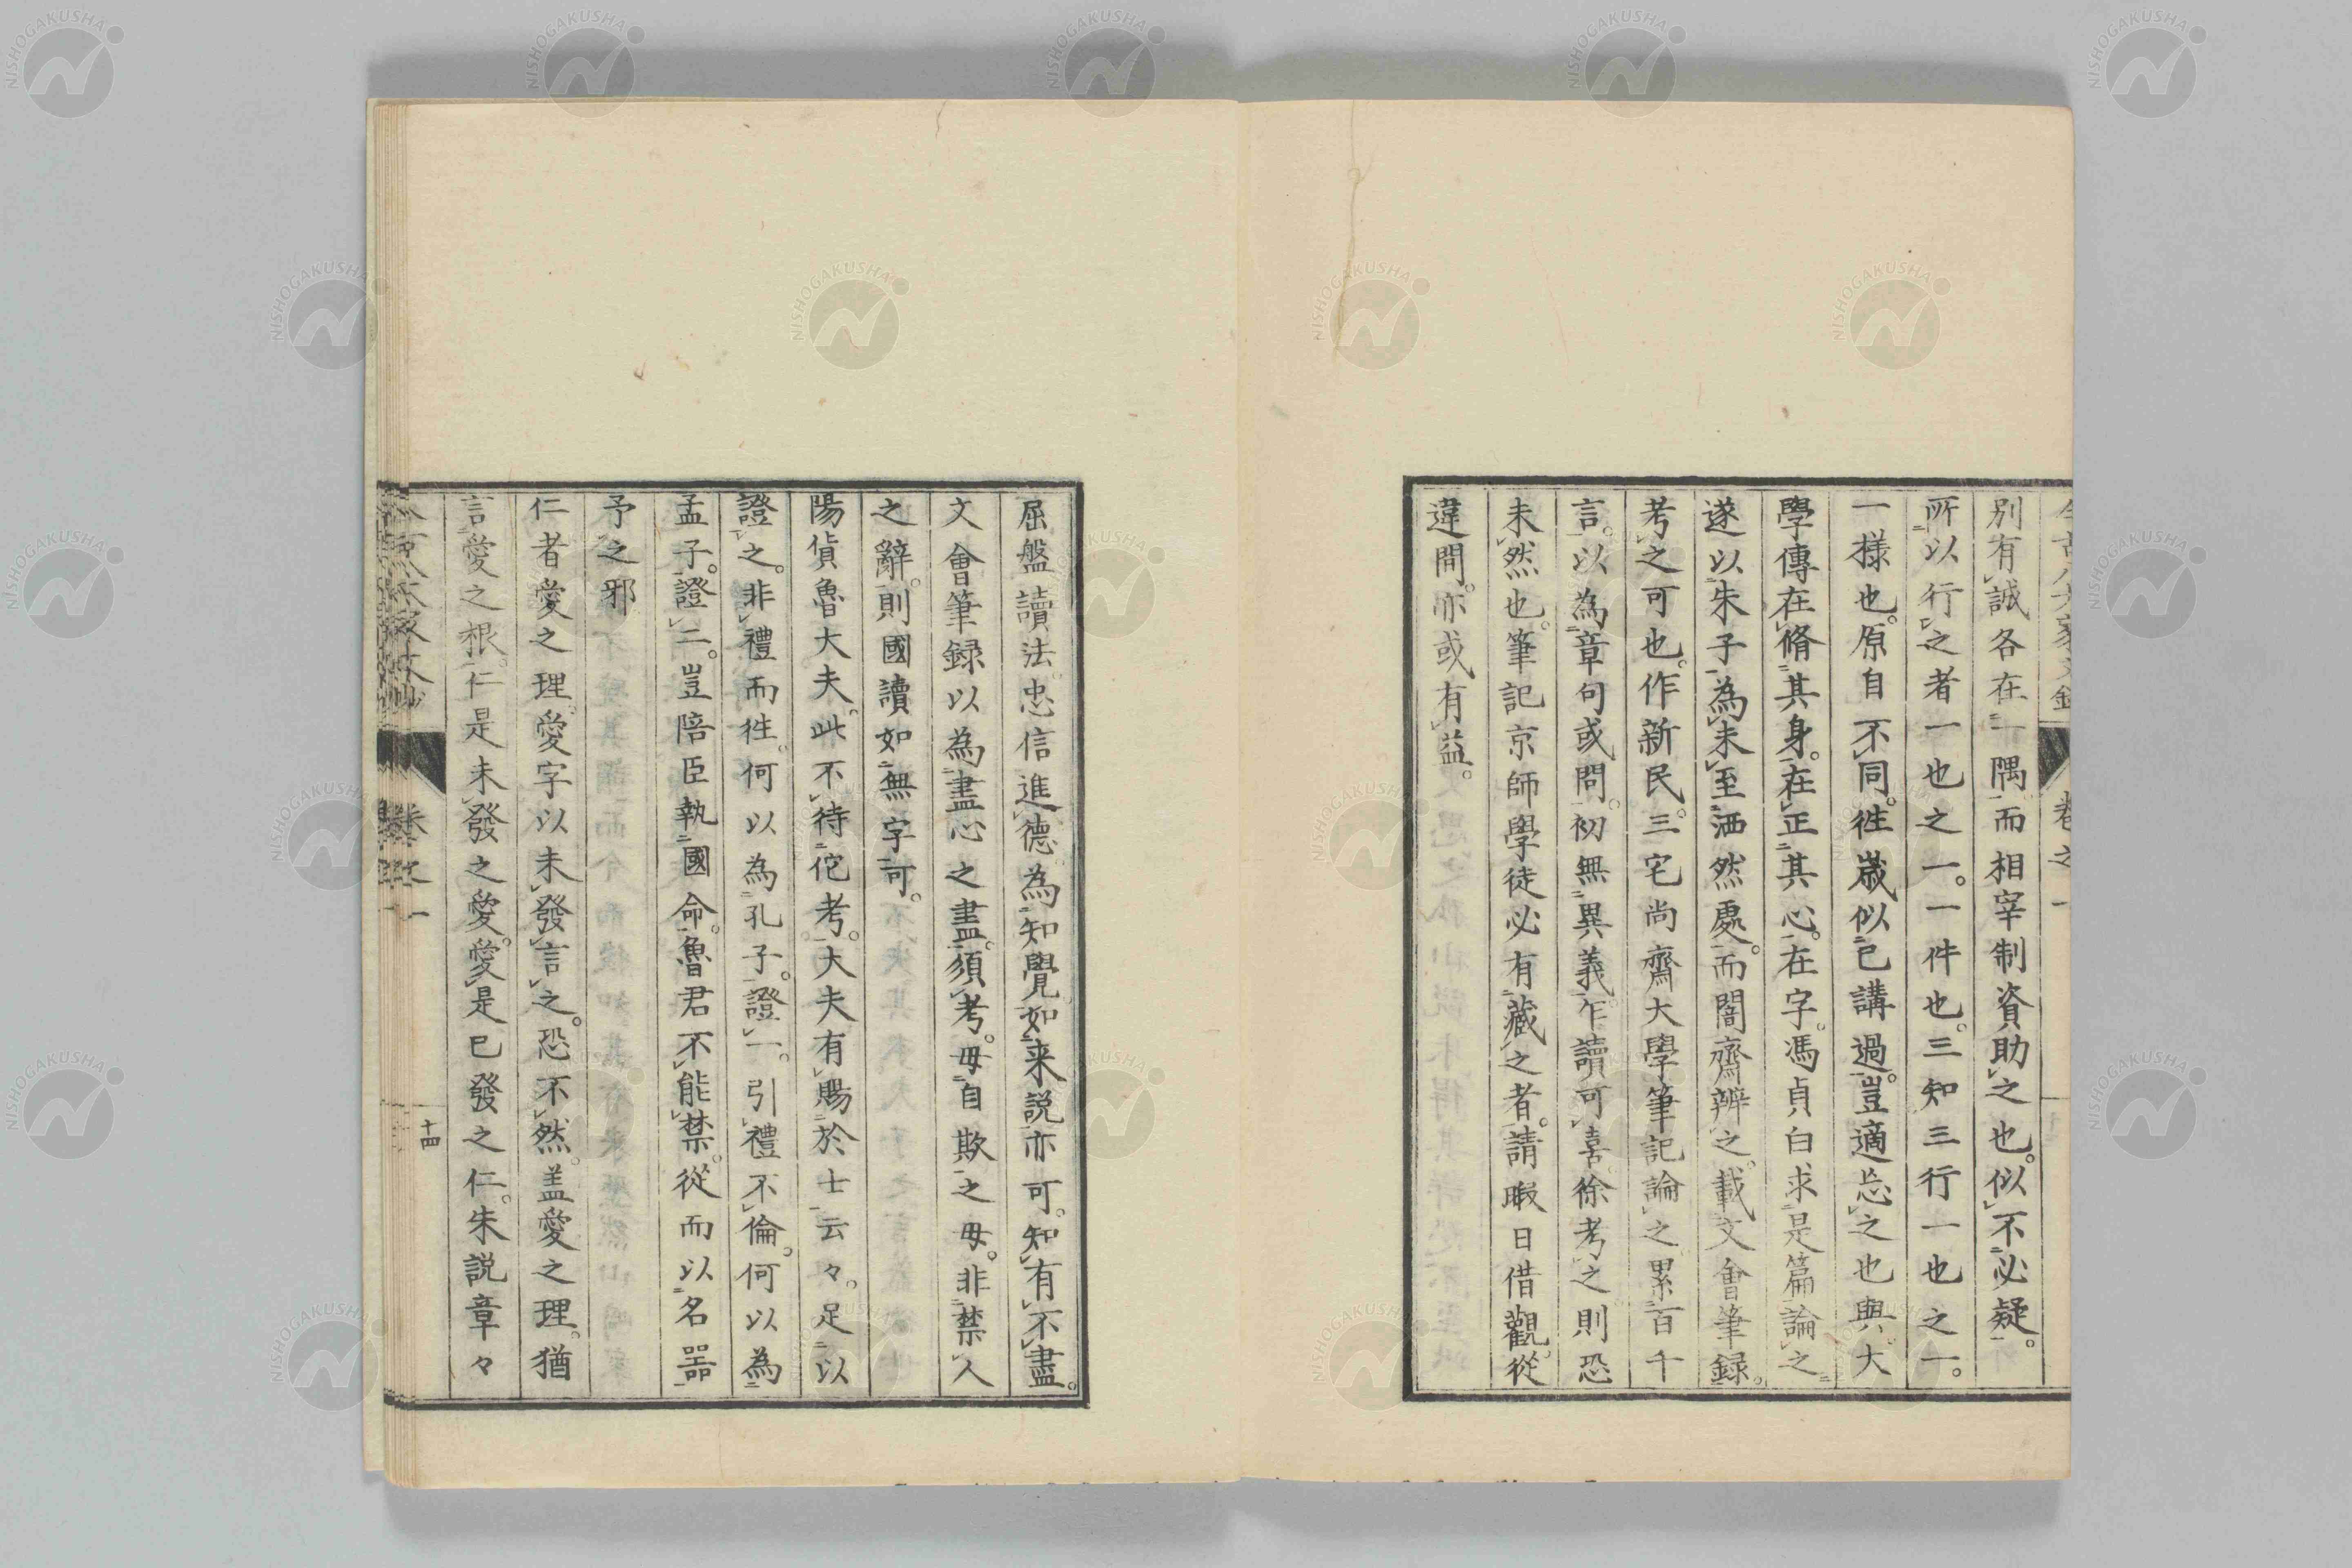 別有誠各在一隅而相宰制資助之也。似不必疑。
所以行之者一也之一。一件也。三知三行一也之一。
一樣也。原自不同。徃歳似已講過。豈適忘之也與。大
學傳在脩其身。在正其心。在字。馮貞白求是篇論之。
遂以朱子為未至洒然處。而闇齋辨之。載文會筆録。
考之可也。作新民。三宅尚齋大學筆記論之。累百千
言。以為章句或問。初無異義。乍讀可喜。徐考之則恐
未然也。筆記京師學徒必有藏之者。請暇日借觀。從
違間。亦或有益。
屈盤讀法。忠信進德。為知覺。如来説亦可。知有不盡。
文會筆録以為盡心之盡。須考。毋自欺之毋。非禁人
之辭。則國讀如無字可。
陽貨魯大夫。此不待佗考。大夫有賜於士云々。足以
證之。非禮而徃。何以為孔子。證一。引禮不倫。何以為
孟子。證二。豈陪臣執國命。魯君不能禁。從而以名器
予之邪
仁者愛之理。愛字以未發言之。恐不然。盖愛之理。猶
言愛之根。仁是未發之愛。愛是已發之仁。朱説章々
卷之一
十四
NISHOGAKUSHA